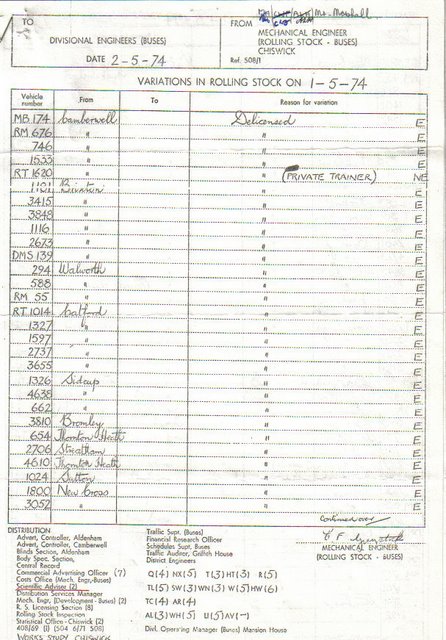 TO
DIVISIONAL ENGINEERS (BUSES)
DATE 2-5-74
Mr. Marshall.
FROM
MECHANICAL ENGINEER
(ROLLING STOCK - BUSES)
CHISWICK
Ref. 508/1
VARIATIONS IN ROLLING STOCK ON 1-5-74
Vehicle number From To Reason for variation
MB 174 Camberwell Delicensed E
RM 676 " " E
746 " " E
1533 " " E
RT 1620 " " (PRIVATE TRAINER) NE
1101 Brixton " E
3415 " " E
3848 " " E
1116 " " E
2673 " " E
DMS 139 " " E
294 Walworth " E
588 " " E
RM 55 " " E
RT 1014 Catford " E
1327 " " E
1597 " " E
2737 " " E
3655 " " E
1326 Sidcup " E
4638 " " E
662 " " E
3810 Bromley " E
654 Thornton Heath " E
2706 Streatham " E
4610 Thornton Heath " E
1024 Sutton " E
1800 New Cross " E
3052 " " E
Continued over
MECHANICAL ENGINEER
(ROLLING STOCK - BUSES)
DISTRIBUTION
Advert. Controller, Aldenham
Advert. Controller, Camberwell
Blinds Section, Aldenham
Body Spec. Section,
Central Record
Commercial Advertising Officer (7)
Costs Office (Mech. Engr.-Buses)
Scientific Adviser (2)
Distribution Services Manager
Mech. Engr. (Development - Buses) (2)
R. S. Licensing Section (8)
Rolling Stock Inspection
Statistical Office - Chiswick (2)
408/69 (1) (504 6/71 508)
WORKS STUDY CHISWICK
Traffic Supt. (Buses)
Financial Research Officer
Schedules Supt. Buses
Traffic Auditor, Griffith House
District Engineers
Q(4) NX(5) T(3) HT(3) R(5)
TL(5) SW(3) WN(3) W(5) HW(6)
TC(4) AR(4)
AL(3) WH(5) U(5) AV(-)
Divl. Operating Manager (Buses) Mansion House